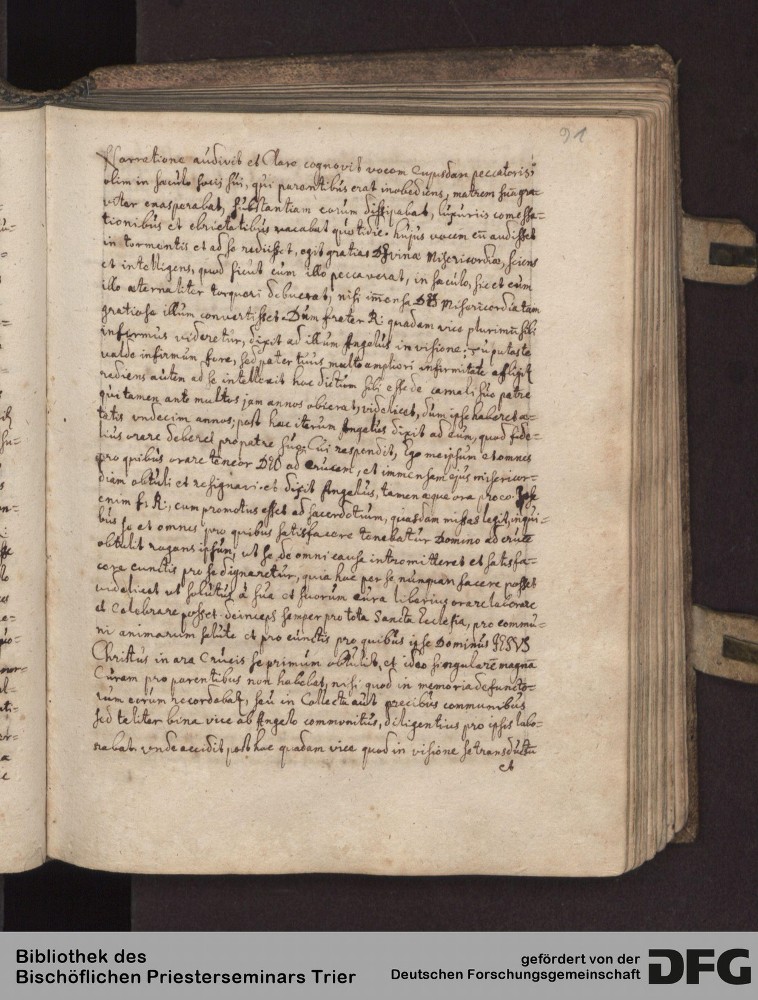 91
Narratione audivit et Claro cognovit vocem Cujusdam peccatoris
olim in sæculo socii sui, qui parentibus erat inobediens, matrem suā gra-
viter exasperabat, substantiam eorum dissipabat, luxuriis comessa-
tionibus et ebrietatibus vacabat quotidie. hujus vocem cū audisset
in tormentis et ad se rediisset, egit gratias Divinæ Misericordiæ, sciens
et intelligens, quod sicut cum illo peccaverat, in sæculo, sic et cum
illo æternaliter torqueri debuerat, nisi immensa DEI Misericordia tam
gratiose illum convertisset. Dum frater R: quadam vice plurimū sibi
infirmus videretur, dixit ad illum Angelus in visione: Tu putas te
valde infirmum fore, sed pater tuus multo ampliori infirmitate affligit
rediens autem ad se intellexit hoc dictum sibi esse de carnali suo patre
qui tamen ante multos jam annos obierat, videlicet, dum ipse haberet æ-
tatis undecim annos; post hæc iterum Angelus dixit ad eum, quod fide-
lius orare deberet pro patre suo. Cui respondit, Ego meipsum et omnes
pro quibus orare teneor DEO ad crucem, et immensam ejus misericor-
diam obtuli et resignavi. et dixit Angelus, tamen æque ora pro eo. Ipse
enim fr R:, cum promotus esset ad sacerdotium, quasdam missas legit, in qui-
bus se et omnes pro quibus satisfacere tenebatur Domino ad crucē
obtulit rogans ipsum, ut se de omni causa intromitteret et satisfa-
cere cunctis pro se dignaretur, quia hoc per se nunquam facere posset
videlicet ut solutus à sua et suorum cura liberius orare laborare
et Celebrare posset. deinceps semper pro tota Sancta Ecclesia, pro commu-
ni animarum salute et pro cunctis pro quibus ipse Dominus JESUS
Christus in ara Crucis se primum obtulit, et ideo singularē magna
Curam pro parentibus non habebat, nisi quod in memoria defuncto-
rum eorum recordabat, seu in Collecta aut precibus communibus
sed taliter bina vice ab Angelo commonitus, diligentius pro ipsis labo-
rabat. unde accidit post hæc quadam vice quod in visione se transductū
et
Bibliothek des
Bischöflichen Priesterseminars Trier
gefördert von der
Deutschen Forschungsgemeinschaft
DFG